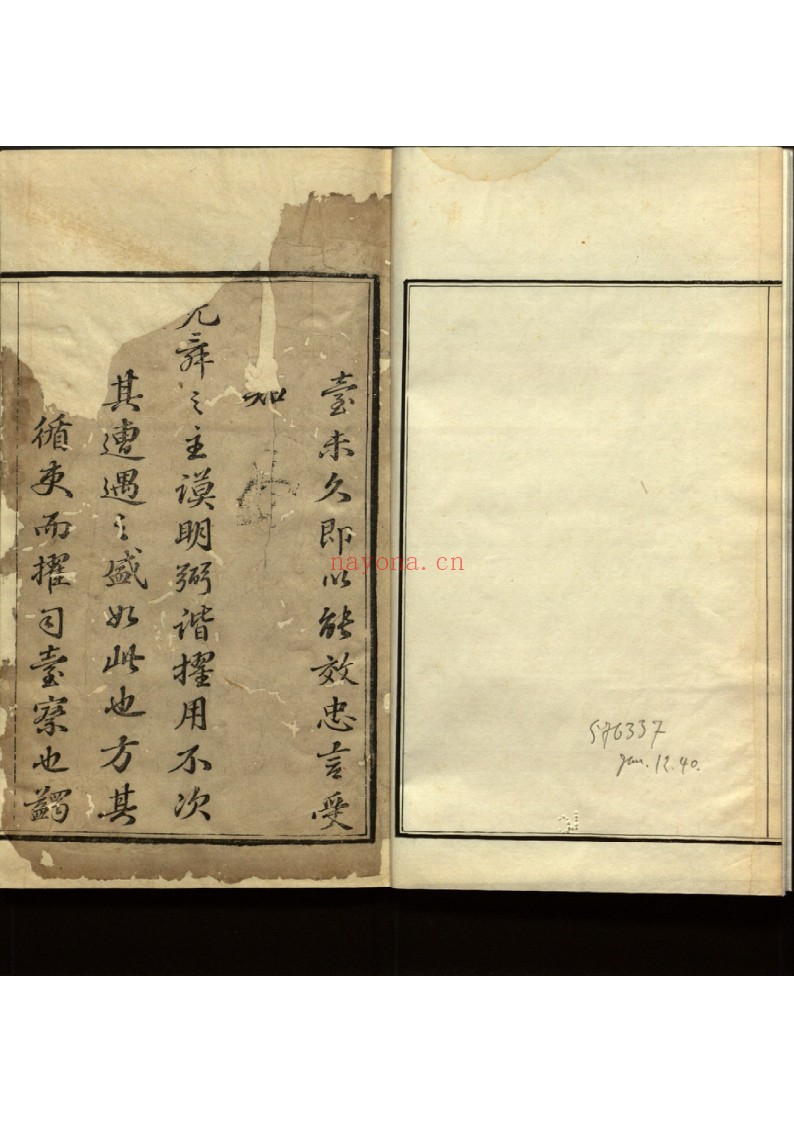 臺未久即以能效忠言受
知
舜之主謨明弼諧擢用不次
其遭遇之盛如此也方其
循吏而擢司臺察也蠲
nayona.cn
576337
Jan. 12. 40.